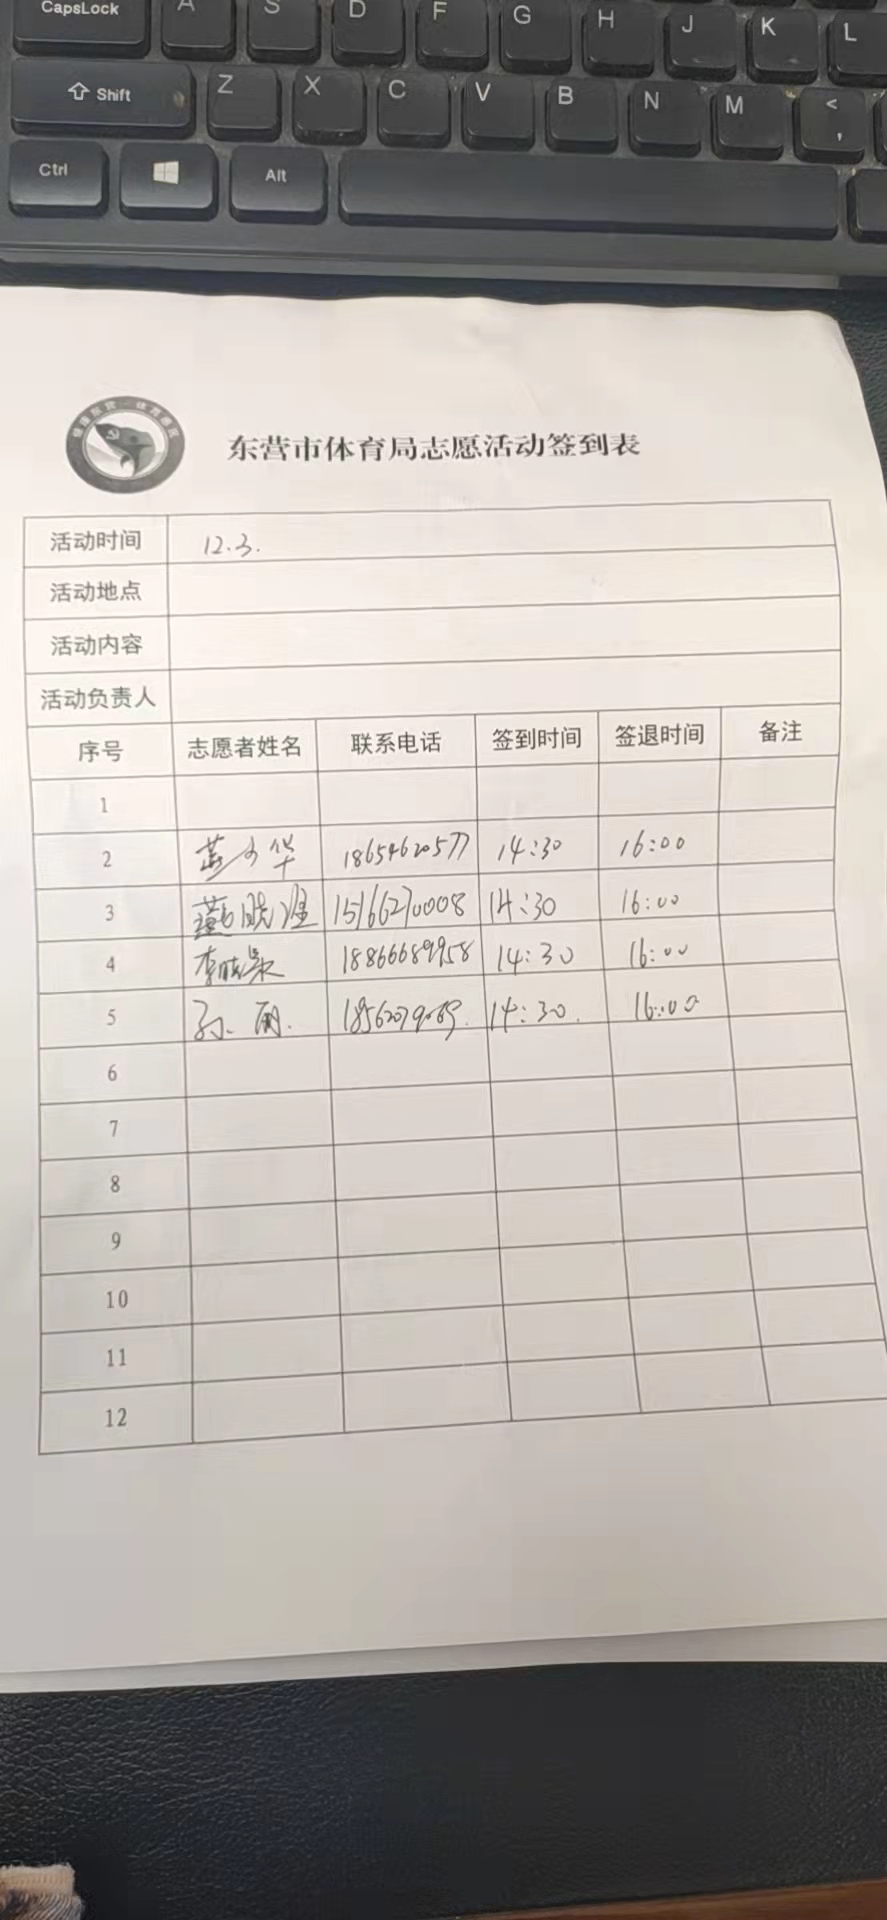 CapsLock A S D F G H J K L
Shift Z X C V B N M < ,
Ctrl Alt
东营市体育局志愿活动签到表
活动时间 12.3.
活动地点
活动内容
活动负责人
序号 志愿者姓名 联系电话 签到时间 签退时间 备注
1
2 华 18654620577 14:30 16:00
3 15166270008 14:30 16:00
4 李晓 18866689958 14:30 16:00
5 孙丽. 14:30. 16:00
6
7
8
9
10
11
12